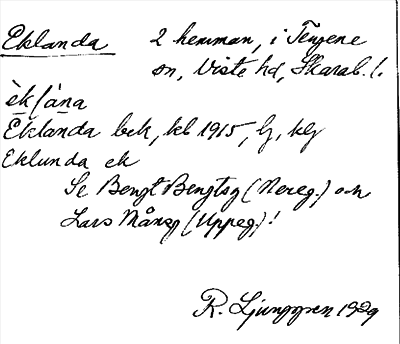 Eklanda 2 hemman, i Tengene
sn, Viste hd, Skarab. l.
èk/ána
Eklanda bek, kbl 1915, lj, klj
Eklunda ek
Se Bengt Bengtsg (Nereg.) och
Lars Månsg (Uppeg.)!
R. Ljunggren 1929